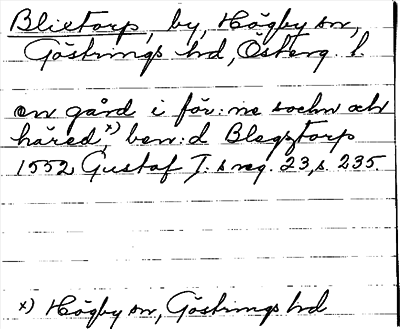 Blixtorp, by, Högby sn,
Göstrings hd, Österg. l.
en gård i för:ne sochn och
häred,x) ben:d Blegztorp
1552 Gustaf I:s reg. 23, s. 235.
x) Högby sn, Göstrings hd